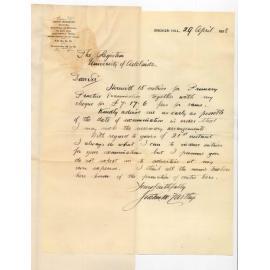 BROKEN HILL, 29 April
The Registrar
University of Adelaide
Dear Sir
Herewith 18 entries for Primary
Practice Examination together with my
cheque for £7.17.6 fee for same.
Kindly advise me as early as possible
of the date of examination in order that
I may make the necessary arrangements
With regard to yours of 21st instant
I always do what I can to secure entries
for your examination but I presume you
do not expect me to advertise at my
own expense. I think all the music teachers
here know of the provision of centre here.
Yours faithfully